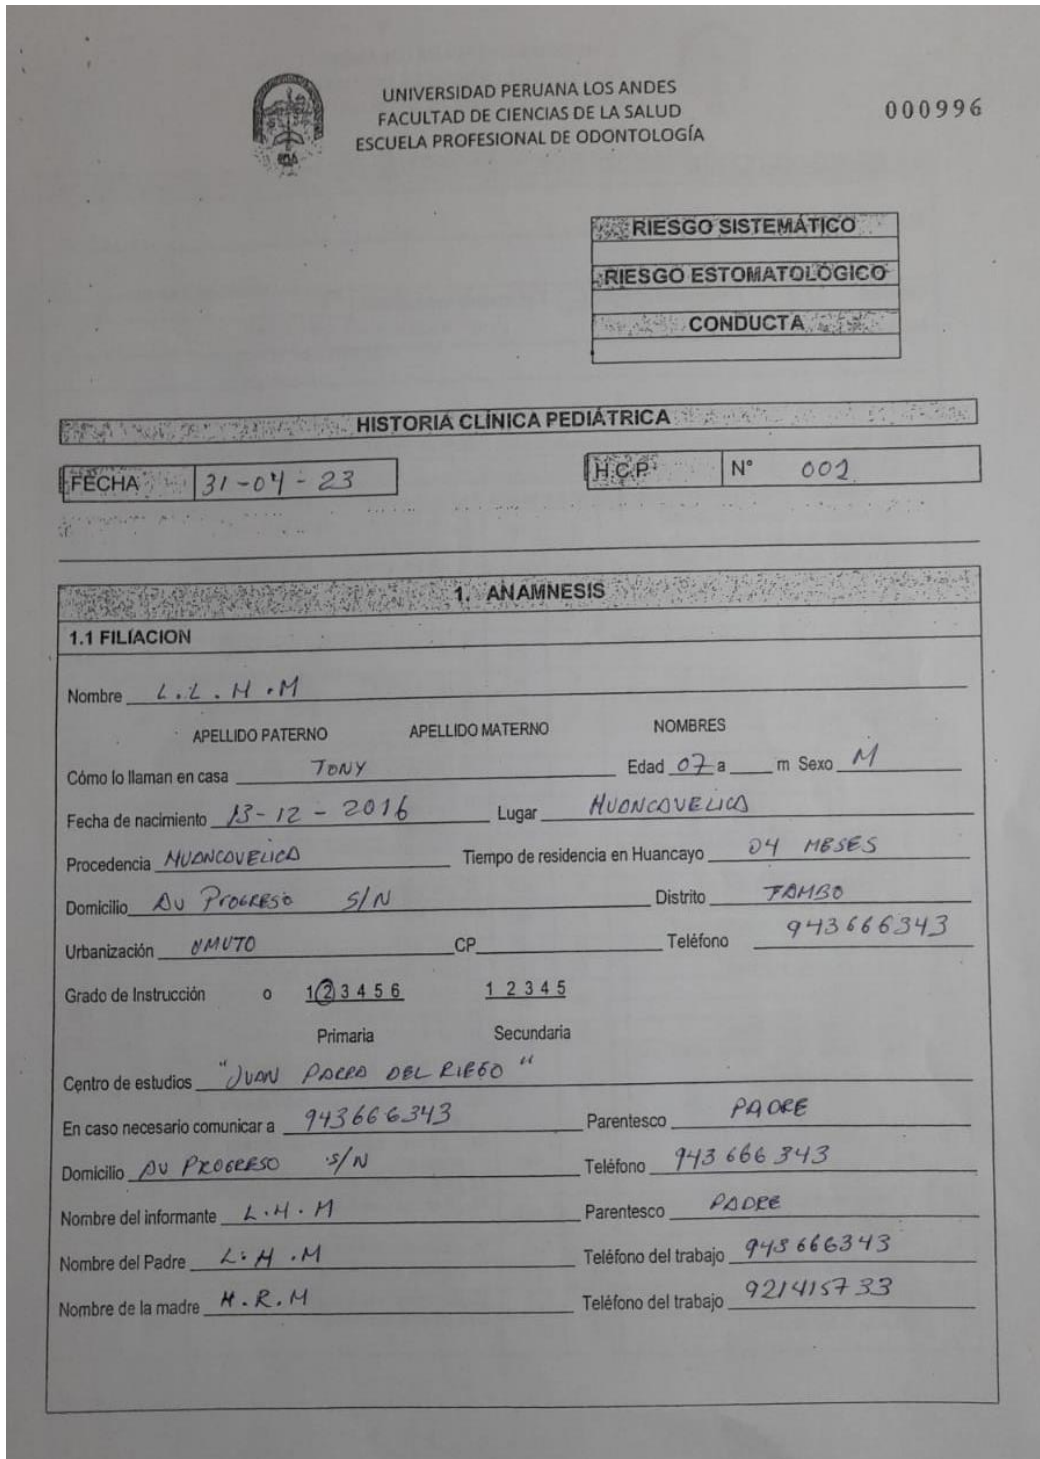 UNIVERSIDAD PERUANA LOS ANDES
FACULTAD DE CIENCIAS DE LA SALUD
ESCUELA PROFESIONAL DE ODONTOLOGÍA
000996
RIESGO SISTEMÁTICO
RIESGO ESTOMATOLÓGICO
CONDUCTA
HISTORIA CLÍNICA PEDIÁTRICA
FECHA 31-04-23 H.C.P. N° 002
1. ANAMNESIS
1.1 FILIACION
Nombre L.L.H.M
APELLIDO PATERNO APELLIDO MATERNO NOMBRES
Cómo lo llaman en casa TONY Edad 07 a ____ m Sexo M
Fecha de nacimiento 13-12-2016 Lugar HUANCAVELICA
Procedencia HUANCAVELICA Tiempo de residencia en Huancayo 04 MESES
Domicilio AV PROGRESO S/N Distrito TAMBO
Urbanización UMUTO CP____ Teléfono 943666343
Grado de Instrucción o 1 2 3 4 5 6 1 2 3 4 5
Primaria Secundaria
Centro de estudios "JUAN PARRA DEL RIEGO"
En caso necesario comunicar a 943666343 Parentesco PADRE
Domicilio AV PROGRESO S/N Teléfono 943 666 343
Nombre del informante L.H.M Parentesco PADRE
Nombre del Padre L.H.M Teléfono del trabajo 943666343
Nombre de la madre H.R.M Teléfono del trabajo 921415733